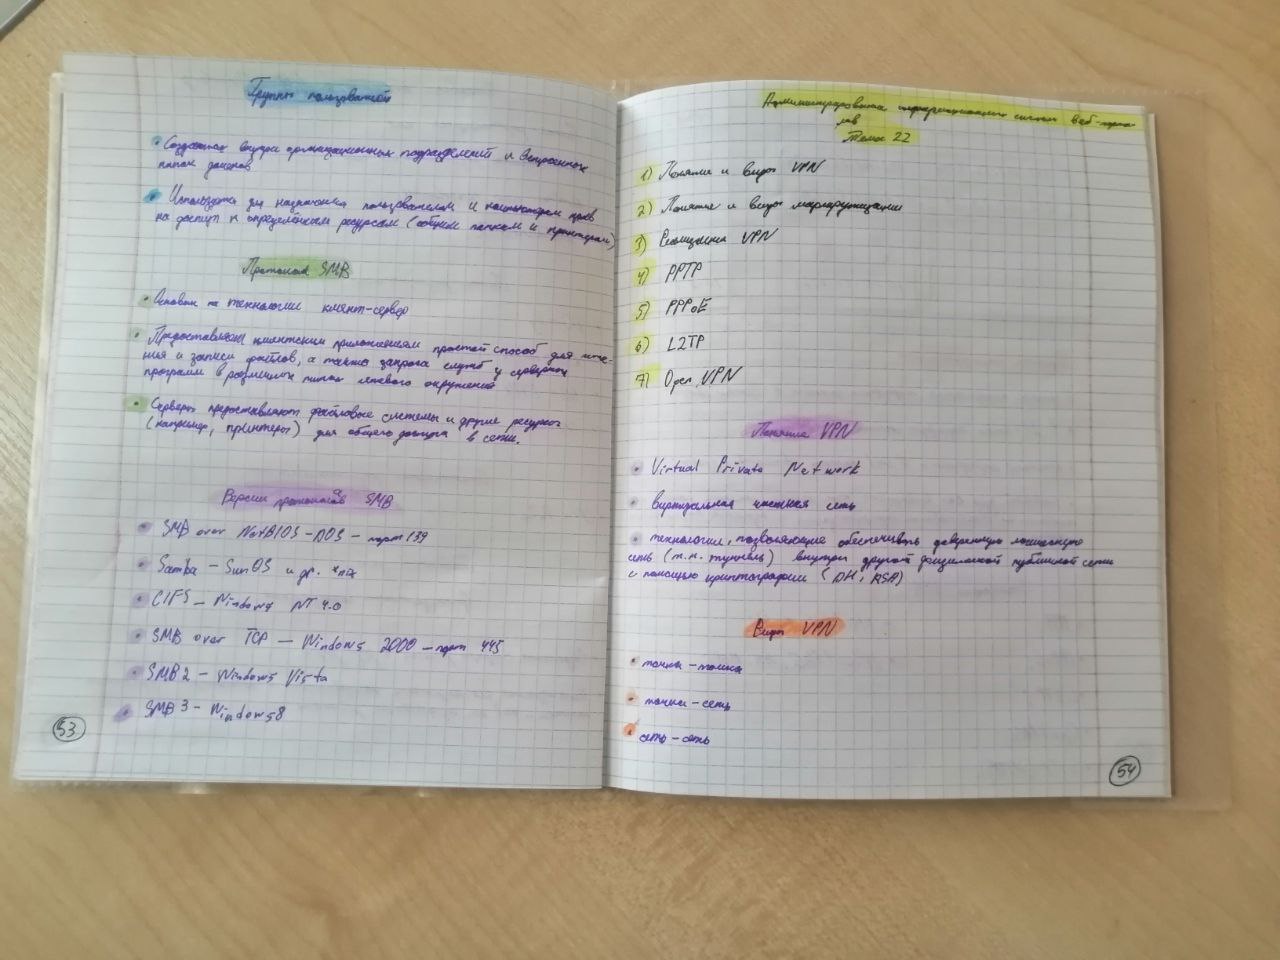 Группы пользователей
• Создаются внутри организационных подразделений и встроенных
папок доменов
• Используются для назначения пользователям и компьютерам прав
на доступ к определённым ресурсам (общим папкам и принтерам)
Протокол SMB
• Основан на технологии клиент-сервер
• Предоставляет клиентским приложениям простой способ для чте-
ния и записи файлов, а также запроса служб у серверных
программ в различных типах сетевого окружения
• Серверы предоставляют файловые системы и другие ресурсы
(например, принтеры) для общего доступа в сети.
Версии протоколов SMB
• SMB over NetBIOS - DOS - порт 139
• Samba - SunOS и др. *nix
• CIFS - Windows NT 4.0
• SMB over TCP - Windows 2000 - порт 445
• SMB2 - Windows Vista
• SMB 3 - Windows 8
53
Администрирование информационных систем веб-порта
лов
Тема 22
1) Понятие и виды VPN
2) Понятие и виды маршрутизации
3) Реализация VPN
4) PPTP
5) PPPoE
6) L2TP
7) Open VPN
Понятие VPN
• Virtual Private Network
• виртуальная частная сеть
• технологии, позволяющие обеспечивать доверенную логическую
сеть (т.н. туннель) внутри другой физической публичной сети
с помощью криптографии (DH, RSA)
Виды VPN
• точка-точка
• точка-сеть
• сеть-сеть
54